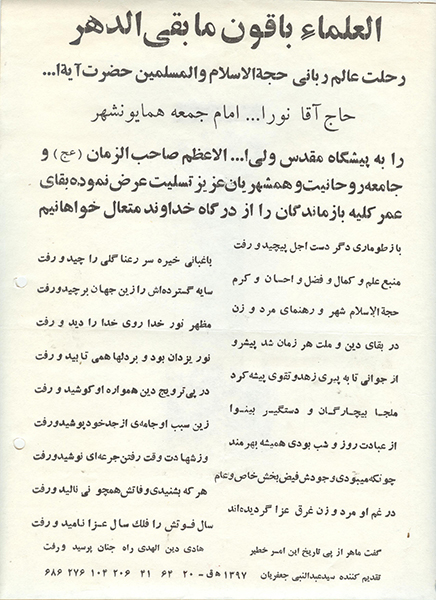 العلماءِ باقون مابقی الدهر
رحلت عالم ربانی حجةالاسلام والمسلمین حضرت آیةا...
حاج آقا نورا... امام جمعه همایونشهر
را به پیشگاه مقدس ولی‌ا... الاعظم صاحب الزمان (عج) و
جامعه روحانیت و همشهریان عزیز تسلیت عرض نموده بقای
عمر کلیه بازماندگان را از درگاه خداوند متعال خواهانیم
باز طوماری دگر دست اجل پیچید و رفت
باغبانی خیره سر رعنا گلی را چید و رفت
منبع علم و کمال و فضل و احسان و کرم
سایه گسترده‌اش را زین جهان برچید و رفت
حجةالاسلام شهر و رهنمای مرد و زن
مظهر نور خدا روی خدا را دید و رفت
در بقای دین و ملت هر زمان شد پیشرو
نور یزدان بود و بردلها همی تابید و رفت
از جوانی تا به پیری زهد و تقوی پیشه کرد
در پی ترویج دین همواره او کوشید و رفت
ملجا بیچارگان و دستگیر بینوا
زین سبب او جامه‌ای از جد خود پوشید و رفت
از عبادت روز و شب بودی همیشه بهرمند
وز شهادت وقت رفتن جرعه‌ای نوشید و رفت
چونکه میبودی وجودش فیض بخش خاص و عام
هر که بشنیدی وفاتش همچو نی نالید و رفت
در غم او مرد و زن غرق عزا گردیده‌اند
سال فوتش را فلک سال عزا نامید و رفت
گفت ماهر از پی تاریخ این امر خطیر
هادی دین الهدی راه جنان پرسید و رفت
تقدیم کننده سیدعبدالنبی جعفریان ۱۳۹۷ ه‍ ق - ۲۰ ۶۴ ۴۱ ۲۰۶ ۱۰۴ ۲۷۶ ۶۸۶